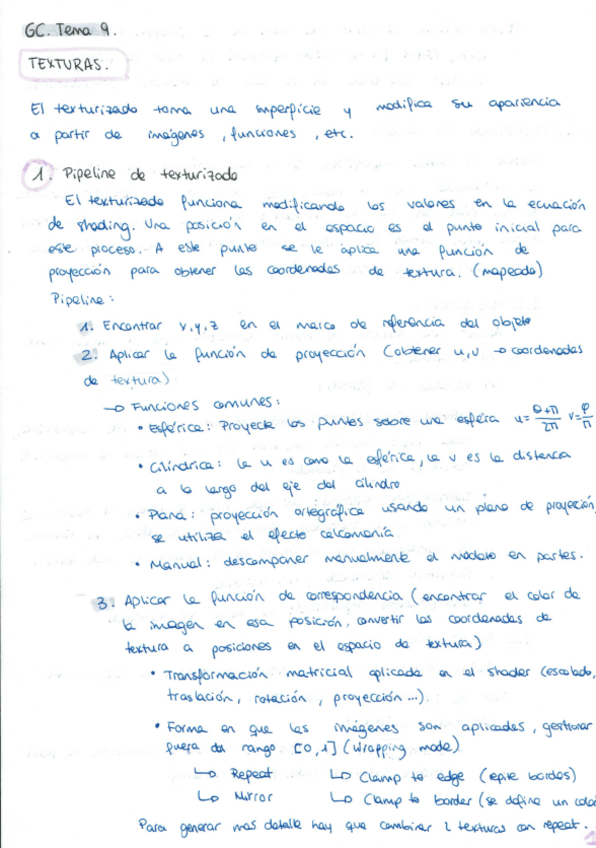 GC. Tema 9.
TEXTURAS.
El texturizado toma una superficie y modifica su apariencia
a partir de imágenes, funciones, etc.
1. Pipeline de texturizado
El texturizado funciona modificando los valores en la ecuación
de shading. Una posición en el espacio es el punto inicial para
este proceso. A este punto se le aplica una función de
proyección para obtener las coordenadas de textura. (mapeado)
Pipeline:
1. Encontrar x,y,z en el marco de referencia del objeto
2. Aplicar la función de proyección (obtener u,v → coordenadas
de textura)
→ Funciones comunes:
• Esférica: Proyecta los puntos sobre una esfera u= θ+π/2π v= φ/π
• Cilíndrica: la u es como la esférica, la v es la distancia
a lo largo del eje del cilindro
• Plana: proyección ortográfica usando un plano de proyección,
se utiliza el efecto calcomanía
• Manual: descomponer manualmente el modelo en partes.
3. Aplicar la función de correspondencia (encontrar el color de
la imagen en esa posición, convertir las coordenadas de
textura a posiciones en el espacio de textura)
• Transformación matricial aplicada en el shader (escalado,
traslación, rotación, proyección...).
• Forma en que las imágenes son aplicadas, gestionar
fuera del rango [0,1] (Wrapping mode)
↳ Repeat ↳ Clamp to edge (repite bordes)
↳ Mirror ↳ Clamp to border (se define un color
Para generar más detalle hay que combinar 2 texturas con repeat.
1